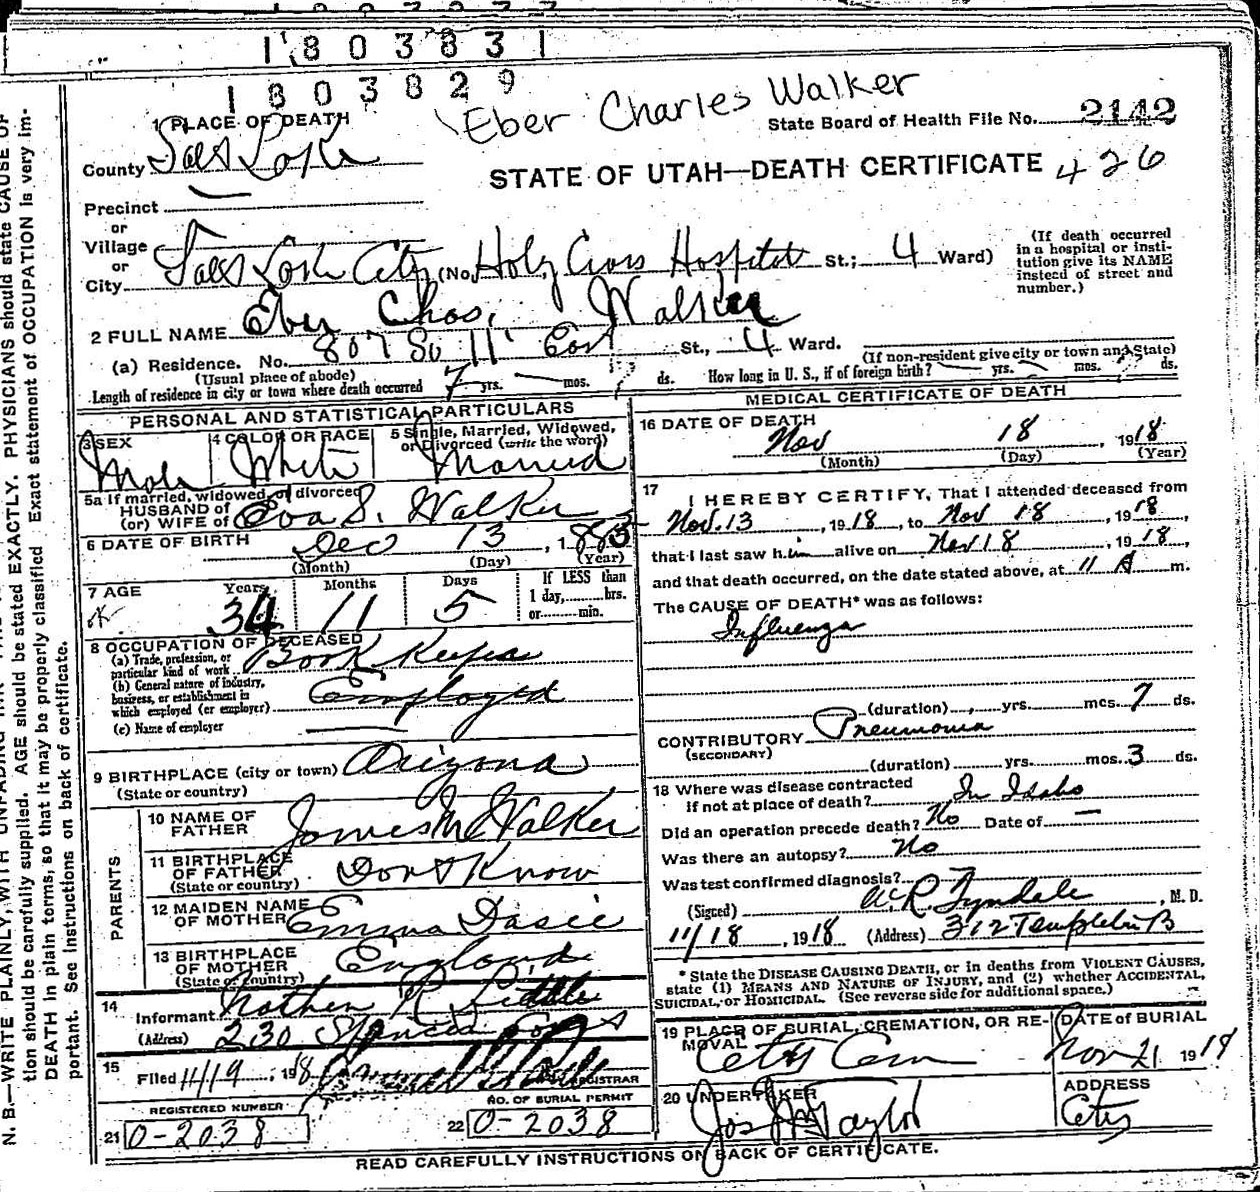 1 8 0 3 8 3 1
1 8 0 3 8 2 9
Eber Charles Walker
State Board of Health File No. 2142
STATE OF UTAH—DEATH CERTIFICATE 426
1 PLACE OF DEATH
County Salt Lake
Precinct
or
Village
or
City Salt Lake City (No. Holy Cross Hospital St.; 4 Ward)
(If death occurred in a hospital or institution give its NAME instead of street and number.)
2 FULL NAME Eber Chas. Walker
(a) Residence. No. 807 So 11 East St., 4 Ward.
(Usual place of abode)
(If non-resident give city or town and State)
Length of residence in city or town where death occurred 7 yrs. — mos. ds. How long in U. S., if of foreign birth? — yrs. mos. ds.
PERSONAL AND STATISTICAL PARTICULARS
3 SEX Male
4 COLOR OR RACE White
5 Single, Married, Widowed, or Divorced (write the word) Married
5a If married, widowed, or divorced
HUSBAND of
(or) WIFE of Eva S. Walker
6 DATE OF BIRTH Dec 13, 1883
(Month) (Day) (Year)
7 AGE Years 34 Months 11 Days 5 If LESS than 1 day, hrs. or min.
8 OCCUPATION OF DECEASED
(a) Trade, profession, or particular kind of work Book Keeper
(b) General nature of industry, business, or establishment in which employed (or employer) Employed
(c) Name of employer —
9 BIRTHPLACE (city or town) Arizona
(State or country)
PARENTS
10 NAME OF FATHER James W Walker
11 BIRTHPLACE OF FATHER Dont Know
(State or country)
12 MAIDEN NAME OF MOTHER Emma
13 BIRTHPLACE OF MOTHER England
(State or country)
14 Informant Nathen R
(Address) 230
15 Filed 11/19, 1918
REGISTRAR
REGISTERED NUMBER
21 O-2038
NO. OF BURIAL PERMIT
22 O-2038
MEDICAL CERTIFICATE OF DEATH
16 DATE OF DEATH Nov 18, 1918
(Month) (Day) (Year)
17 I HEREBY CERTIFY, That I attended deceased from
Nov. 13, 1918, to Nov 18, 1918,
that I last saw him alive on Nov 18, 1918,
and that death occurred, on the date stated above, at 11 A m.
The CAUSE OF DEATH* was as follows:
Influenza
(duration) yrs. mos. 7 ds.
CONTRIBUTORY Pneumonia
(SECONDARY)
(duration) yrs. mos. 3 ds.
18 Where was disease contracted
if not at place of death? In Idaho
Did an operation precede death? No Date of —
Was there an autopsy? No
Was test confirmed diagnosis?
(Signed) A. R. Tyndale, M. D.
11/18, 1918 (Address) 312 Templeton B
* State the DISEASE CAUSING DEATH, or in deaths from VIOLENT CAUSES, state (1) MEANS AND NATURE OF INJURY, and (2) whether ACCIDENTAL, SUICIDAL, or HOMICIDAL. (See reverse side for additional space.)
19 PLACE OF BURIAL, CREMATION, OR REMOVAL City Cem
DATE of BURIAL Nov 21 1918
20 UNDERTAKER Jos Wm Taylor
ADDRESS City
READ CAREFULLY INSTRUCTIONS ON BACK OF CERTIFICATE.
N. B.—WRITE PLAINLY, WITH UNFADING INK
tion should be carefully supplied. AGE should be stated EXACTLY. PHYSICIANS should state CAUSE OF
DEATH in plain terms, so that it may be properly classified. Exact statement of OCCUPATION is very im-
portant. See Instructions on back of certificate.